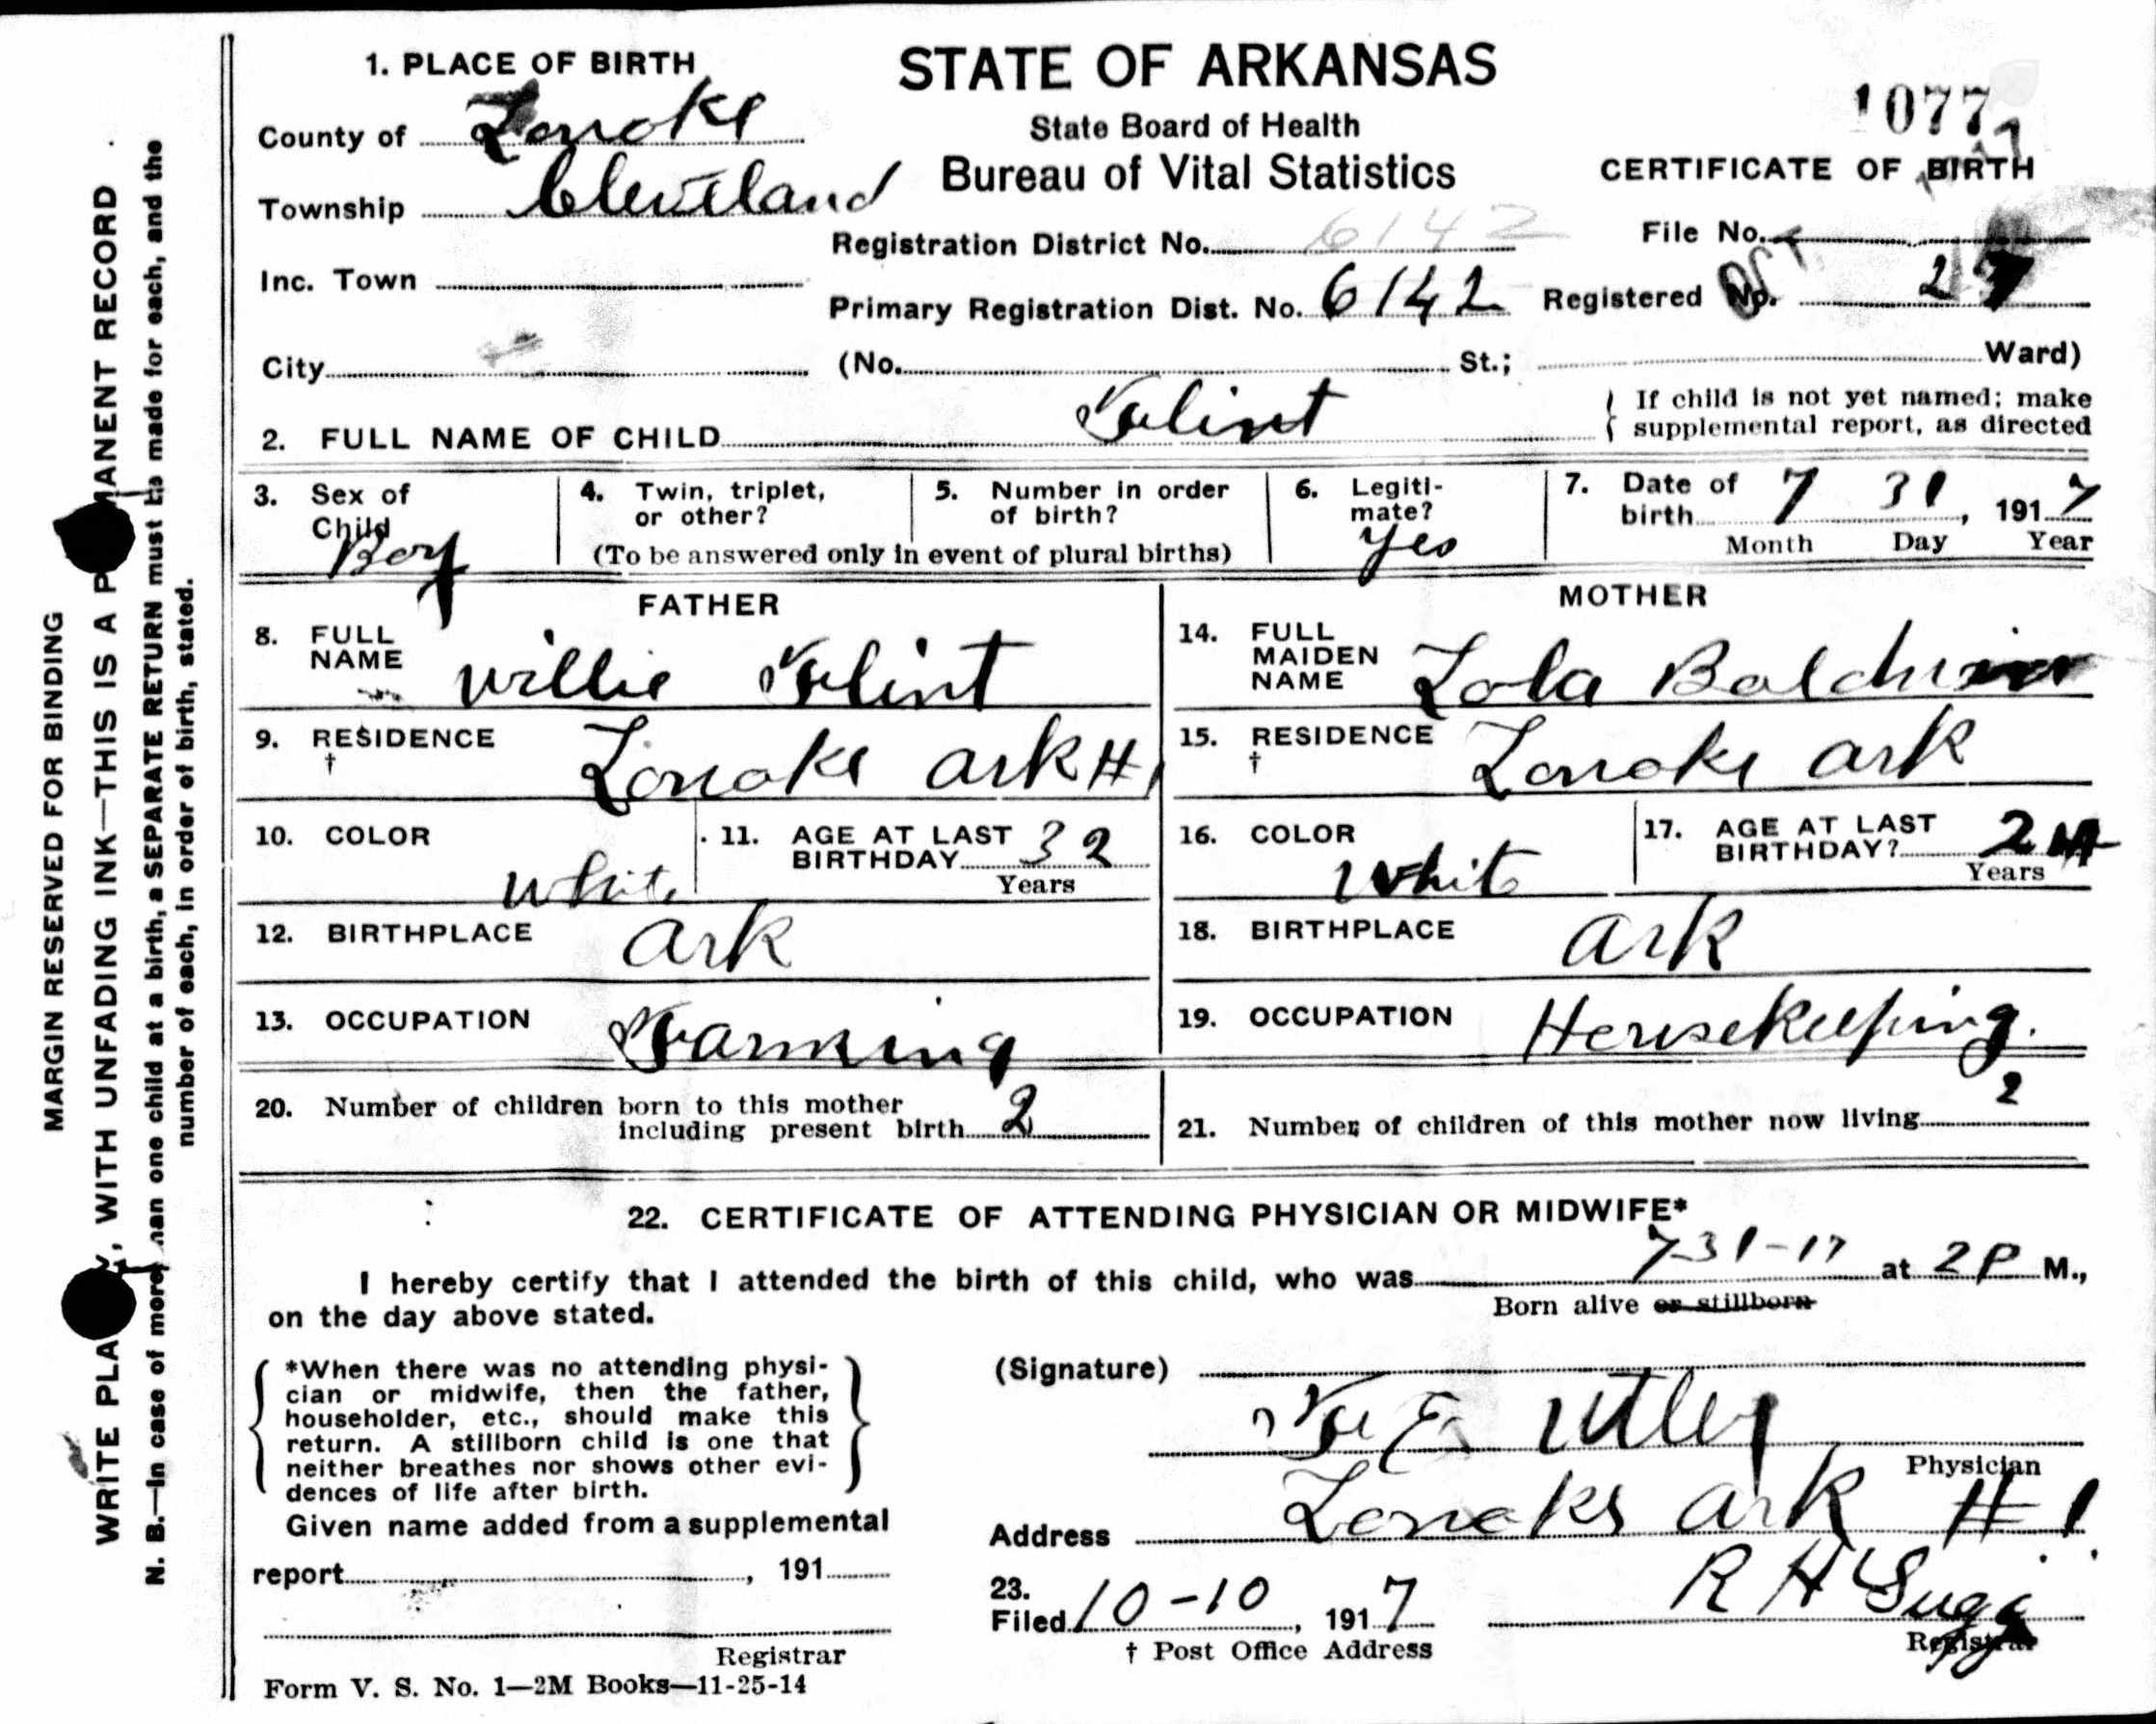 1. PLACE OF BIRTH
STATE OF ARKANSAS
State Board of Health
Bureau of Vital Statistics
1077
CERTIFICATE OF BIRTH
County of Lonoke
Township Cleveland
Inc. Town
City
Registration District No. 6142
Primary Registration Dist. No. 6142
File No.
OCT
Registered No. 27
(No. St.; Ward)
2. FULL NAME OF CHILD Flint
If child is not yet named; make
supplemental report, as directed
3. Sex of
Child
Boy
4. Twin, triplet,
or other?
5. Number in order
of birth?
(To be answered only in event of plural births)
6. Legiti-
mate?
yes
7. Date of
birth 7 31, 1917
Month Day Year
FATHER
8. FULL
NAME Willie Flint
9. RESIDENCE
† Lonoke Ark # 1
10. COLOR
White
11. AGE AT LAST
BIRTHDAY 32
Years
12. BIRTHPLACE Ark
13. OCCUPATION Farming
MOTHER
14. FULL
MAIDEN
NAME Lola Baldwin
15. RESIDENCE
† Lonoke Ark
16. COLOR
White
17. AGE AT LAST
BIRTHDAY? 24
Years
18. BIRTHPLACE Ark
19. OCCUPATION Housekeeping.
20. Number of children born to this mother
including present birth 2
21. Number of children of this mother now living 2
22. CERTIFICATE OF ATTENDING PHYSICIAN OR MIDWIFE*
I hereby certify that I attended the birth of this child, who was 7-31-17 at 2 P M.,
Born alive or stillborn
on the day above stated.
*When there was no attending physi-
cian or midwife, then the father,
householder, etc., should make this
return. A stillborn child is one that
neither breathes nor shows other evi-
dences of life after birth.
Given name added from a supplemental
report , 191
Registrar
Form V. S. No. 1—2M Books—11-25-14
(Signature)
F E Utley
Physician
Address Lonoke Ark # 1
23.
Filed 10-10, 1917
R H Sugg
Registrar
† Post Office Address
MARGIN RESERVED FOR BINDING
WRITE PLA Y, WITH UNFADING INK—THIS IS A P MANENT RECORD
N. B.—In case of more han one child at a birth, a SEPARATE RETURN must be made for each, and the
number of each, in order of birth, stated.